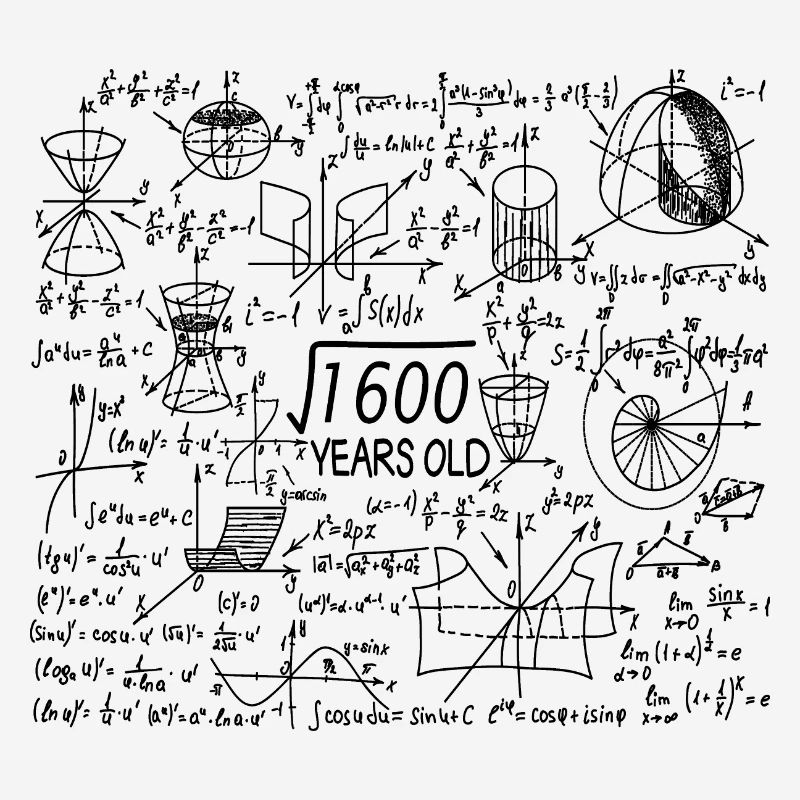 x²/a² + y²/b² + z²/c² = 1
V = ∫dφ ∫ √a²-r² r dr = 2∫ a³(1-sin³φ)/3 dφ = 2/3 a³(π/2 - 2/3)
i² = -1
∫ du/u = ln|u| + C
x²/a² + y²/b² = 1
x²/a² + y²/b² - z²/c² = -1
x²/a² - y²/b² = 1
V = ∬ z dσ = ∬ √a²-x²-y² dxdy
x²/a² + y²/b² - z²/c² = 1
i² = -1
V = ∫ S(x)dx
x²/p + y²/q = 2z
S = 1/2 ∫ r² dφ = a²/8π² ∫ φ² dφ = 1/3 πa²
∫aᵘdu = aᵘ/ln a + C
√1600
YEARS OLD
y=x³
(ln u)' = 1/u · u'
y=arcsin
∫eᵘdu = eᵘ + C
x² = 2pz
(α=-1) x²/p - y²/q = 2z
y² = 2pz
(tg u)' = 1/cos²u · u'
|a| = √a²x + a²y + a²z
(eᵘ)' = eᵘ · u'
(c)' = 0
(uᵅ)' = α · uᵅ⁻¹ · u'
lim x→0 sinx/x = 1
(sin u)' = cosu · u'
(√u)' = 1/2√u · u'
y=sinx
lim α→0 (1+α)^1/α = e
(logₐ u)' = 1/u·lna · u'
lim x→∞ (1+1/x)ˣ = e
(ln u)' = 1/u · u'
(aᵘ)' = aᵘ · lna · u'
∫cosu du = sinu + C
e^iφ = cosφ + isinφ